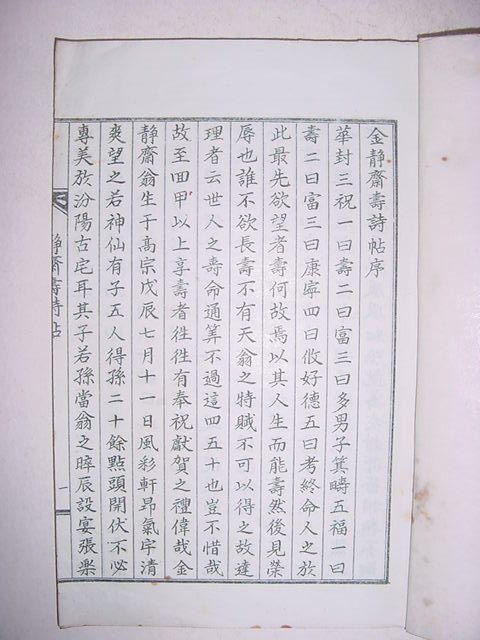 金静齋壽詩帖序
華封三祝一曰壽二曰富三曰多男子箕疇五福一曰
壽二曰富三曰康寧四曰攸好德五曰考終命人之於
此最先欲望者壽何故焉以其人生而能壽然後見榮
辱也誰不欲長壽不有天翁之特賊不可以得之故達
理者云世人之壽命通筭不過這四五十也豈不惜哉
故至回甲以上享壽者徃徃有奉祝獻賀之禮偉哉金
靜齋翁生于高宗戊辰七月十一日風彩軒昂氣宇清
爽望之若神仙有子五人得孫二十餘點頭開伏不必
專美於汾陽古宅耳其子若孫當翁之晬辰設宴張樂
靜齋壽詩帖
一